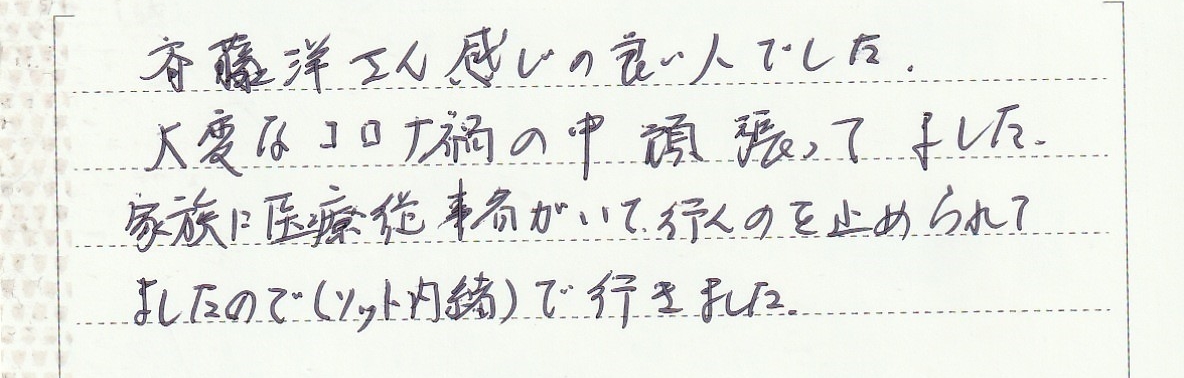 斉藤洋さん感じの良い人でした.
大変なコロナ禍の中頑張ってました.
家族に医療従事者がいて.行くのを止められて
ましたので(ソット内緒)で行きました.